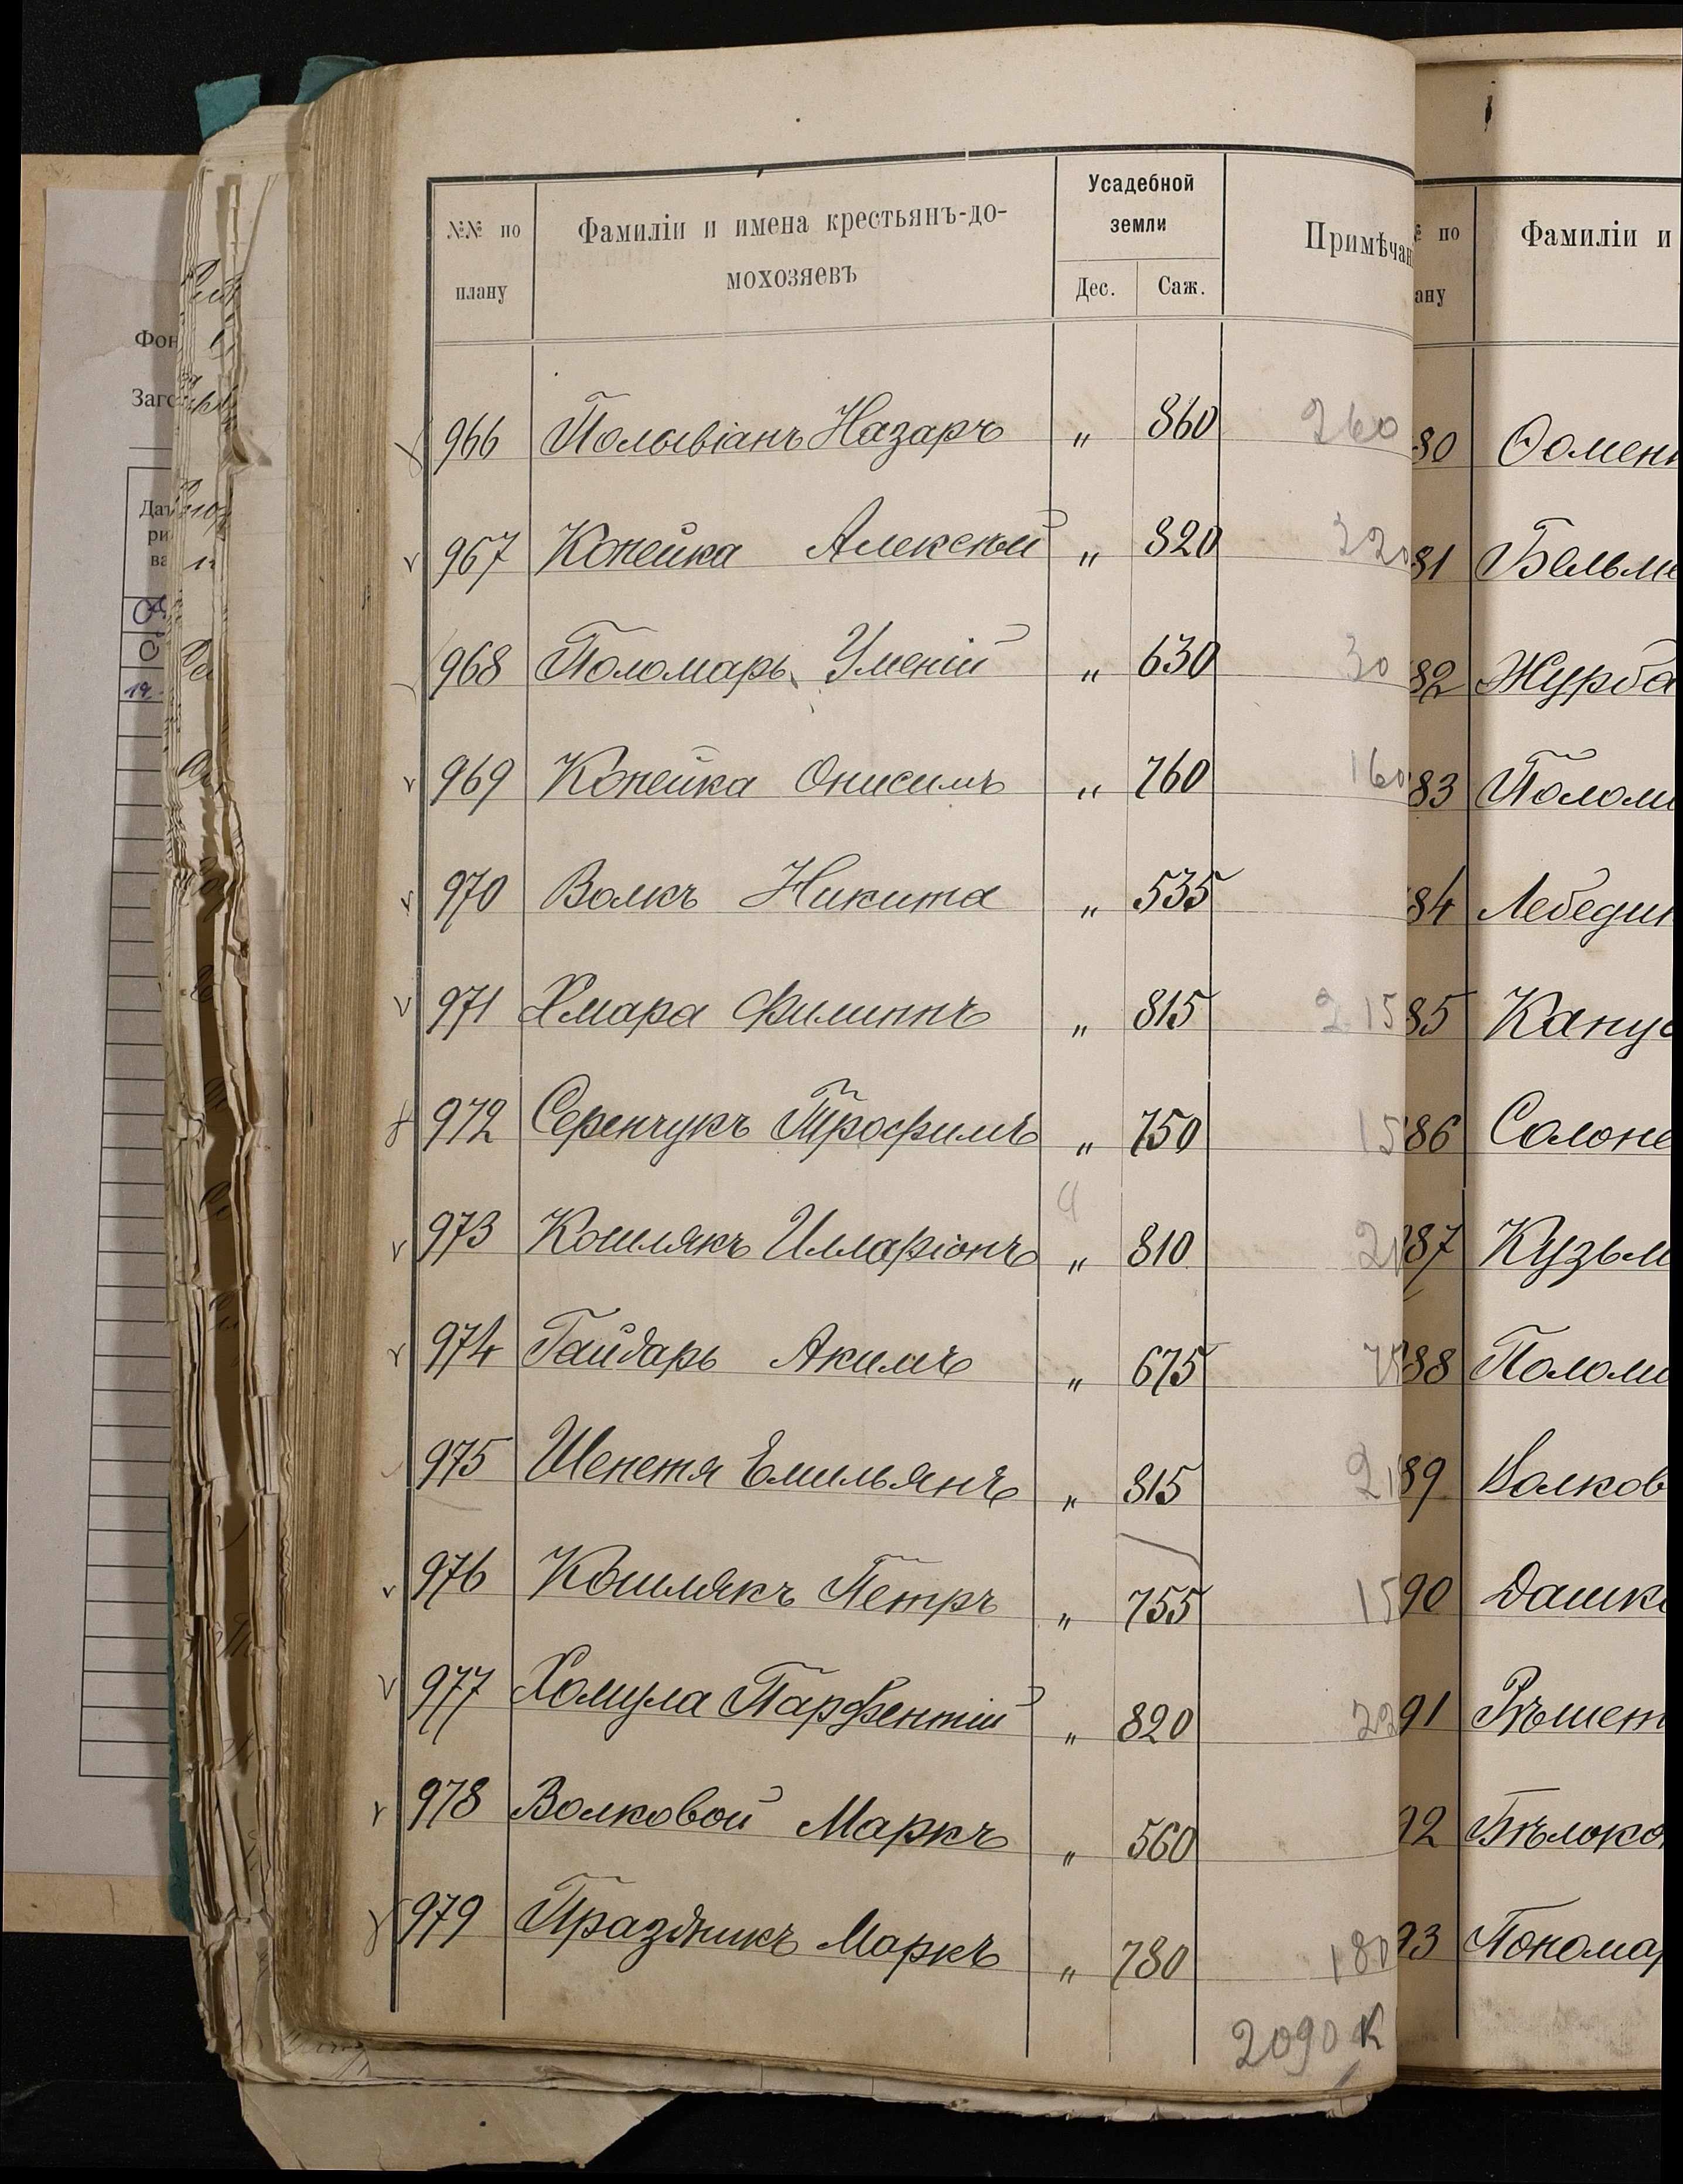 №№ по плану Фамиліи и имена крестьянъ-домохозяевъ Усадебной земли Дес. Саж. Примѣчан
966 Полывіанъ Назаръ „ 860 260
967 Копейка Алексѣй „ 820 220
968 Поломарь „ 630 30
969 Копейка Онисимъ „ 760 160
970 Волкъ Никита „ 535
971 Хмара Филиппъ „ 815 215
972 Серенчукъ Трофимъ „ 750 15
973 Кошлякъ Илларіонъ „ 810 21
974 Гайдарь Акимъ „ 675 7
975 Шепетя Емильянъ „ 815 21
976 Кошлякъ Петръ „ 755 15
977 Хомула Парфентій „ 820 22
978 Волковой Маркъ „ 560
979 Праздникъ Маркъ „ 780 180
2090 К
№ по ану Фамиліи и
80 Ѳомен
81 Бельме
82 Журба
83 Полома
84 Лебедин
85 Капус
86 Солоне
87 Кузьм
88 Полома
89 Волков
90 Дашко
91 Рѣшет
92 Бѣлоко
93 Пономар
Фон
Заго
Дат
ри
ва